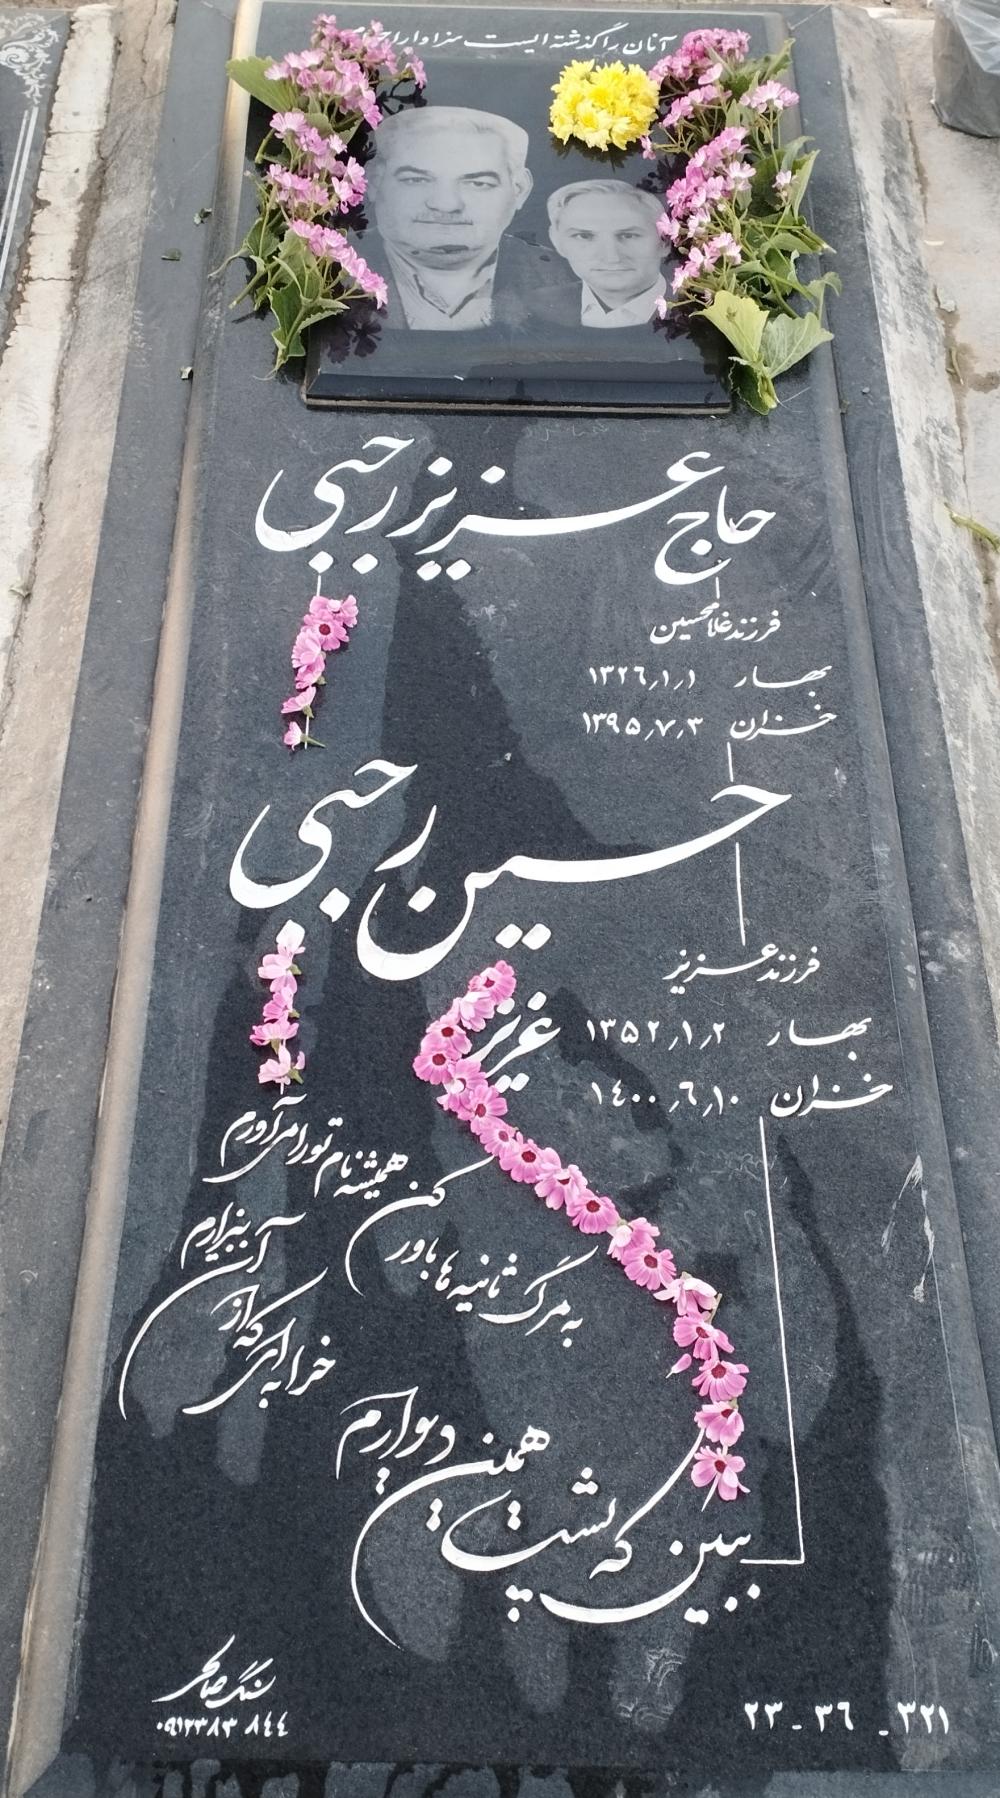 آنان را گذشته ایست سزاوار
حاج عزیز رجبی
فرزند غلامحسین
بهار ۱۳۲۶٫۱٫۱
خزان ۱۳۹۵٫۷٫۳
حسین رجبی
فرزند عزیز
بهار ۱۳۵۲٫۱٫۲
خزان ۱٤۰۰٫٦٫۱۰
عزیز
همیشه نام تو را می آورم
به مرگ ثانیه ها باور کن
خرابه ای که از آن بیزارم
ببین که پشت همین دیوارم
سنگ صالحی
۰۹۱۲۳۸۳ ۸٤٤
۳۲۱ - ۳۶ - ۲۳